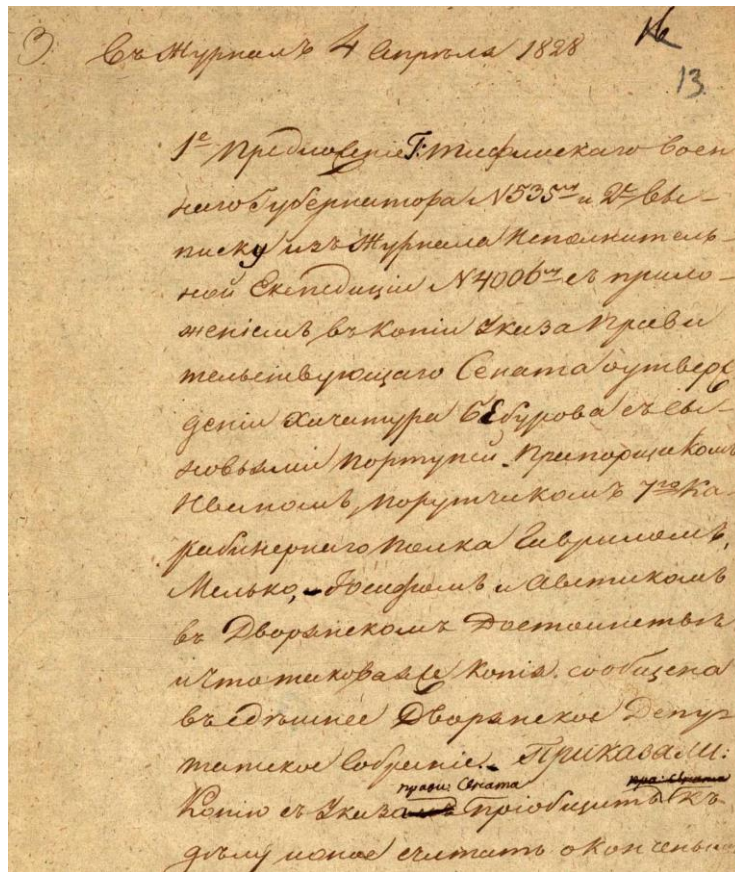 3. Въ Журналъ 4 Апрѣля 1828
13
1е Предложение Г: Тифлискаго Воен
наго Губернатора N 535м и 2е Вы-
писку изъ Журнала Исполнитель-
ной Експедиции N 4006м съ прило-
жениемъ въ копии Указа Прави
тельствующаго Сената о утверж
дении Хачатура Бебурова съ сы-
новьями Портупей Прапорщикомъ
Иваномъ, Порутчикомъ 7го Ка-
рабинернаго полка Гавриломъ,
Мелько, Іосифомъ и Аветикомъ
въ Дворянскомъ Достоинствѣ
и что таковая же копия сообщена
въ здѣшнее Дворянское Депу
татское Собрание. Приказали:
прави: Сената пра: Сената
Копию съ Указа приобщить къ
дѣлу и оное считать оконченым